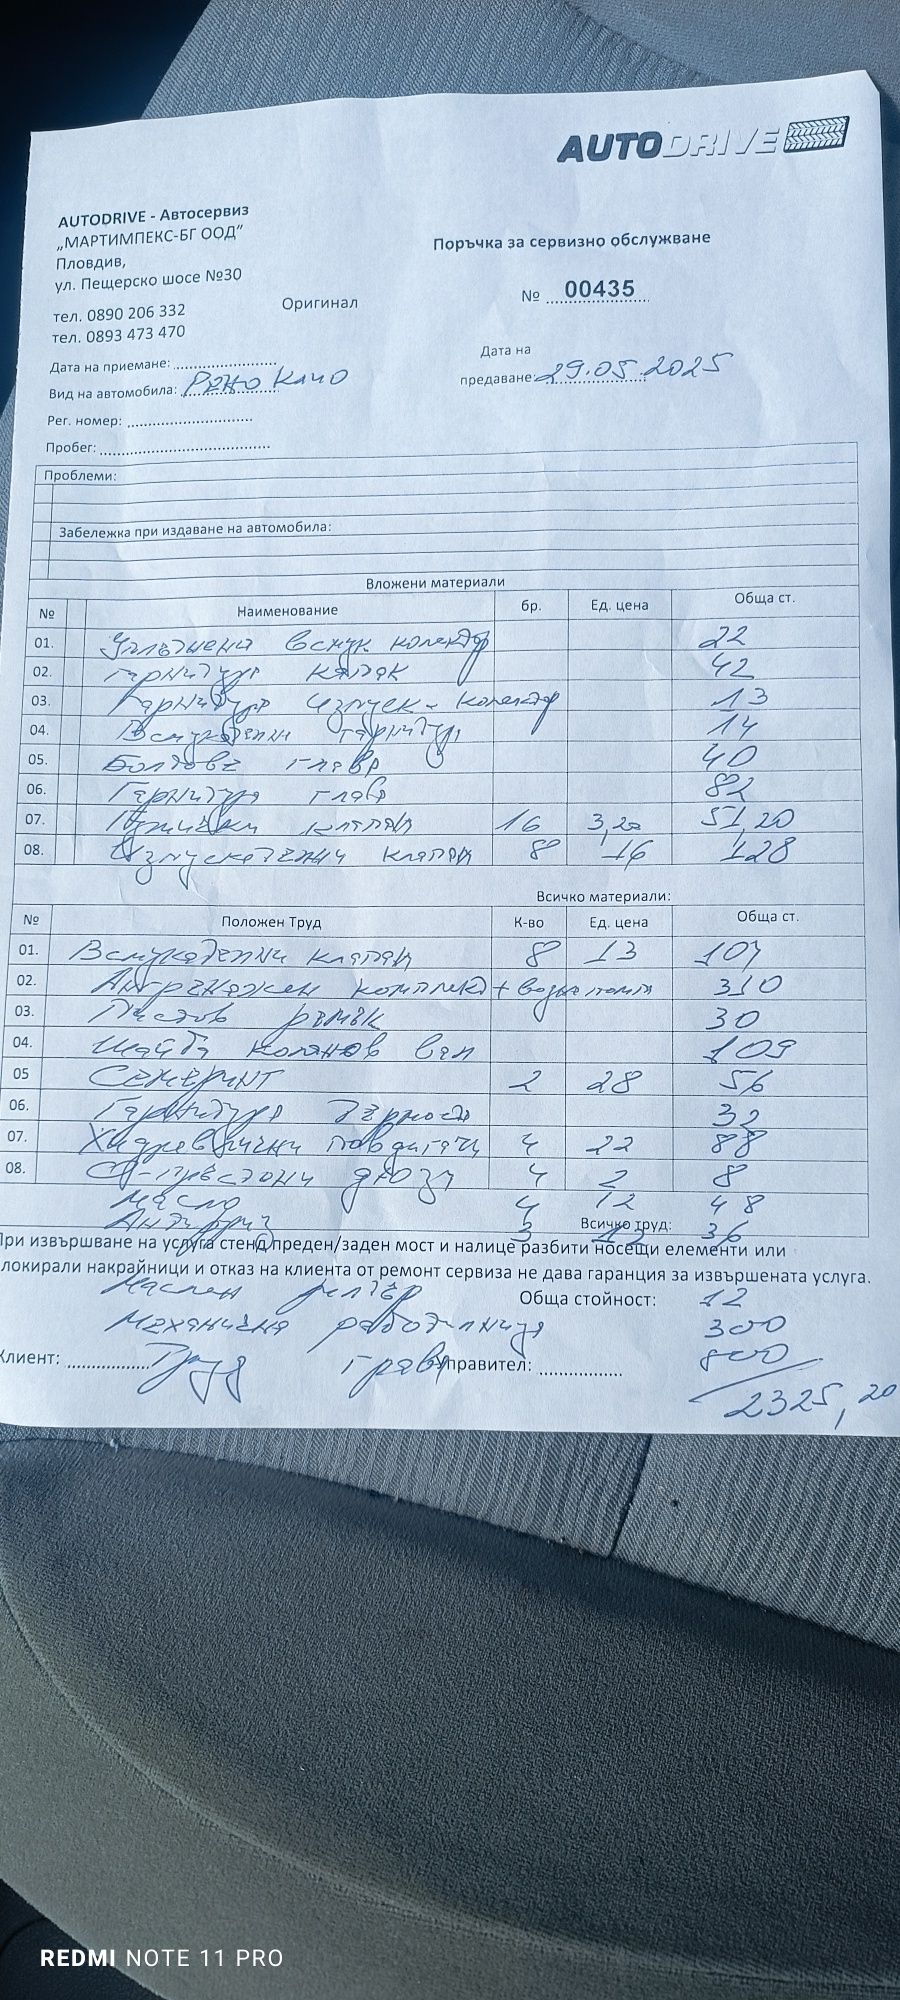 AUTODRIVE
AUTODRIVE - Автосервиз
„МАРТИМПЕКС-БГ ООД”
Пловдив,
ул. Пещерско шосе №30
тел. 0890 206 332
тел. 0893 473 470
Оригинал
Поръчка за сервизно обслужване
№ 00435
Дата на приемане:
Вид на автомобила: Рено Клио
Рег. номер:
Пробег:
Дата на
предаване: 29.05.2025
Проблеми:
Забележка при издаване на автомобила:
Вложени материали
№ Наименование бр. Ед. цена Обща ст.
01. всмук колектор 22
02. Гарнитура капак 42
03. Гарнитура изпуск. колектор 13
04. Всмукателни гарнитури 14
05. Болтове глава 40
06. Гарнитура глава 82
07. клапан 16 3,20 51,20
08. Изпускателни клапан 8 16 128
Всичко материали:
№ Положен Труд К-во Ед. цена Обща ст.
01. Всмукателни клапан 8 13 104
02. Ангренажен комплект + водна помпа 310
03. Пистов ремък 30
04. Шайба колянов вал 109
05 Семеринг 2 28 56
06. Гарнитура 32
07. Хидравлични повдигачи 4 22 88
08. дюзи 4 2 8
Масло 4 12 48
Антифриз 3 12 36
Всичко труд:
При извършване на услуга стенд преден/заден мост и налице разбити носещи елементи или
локирали накрайници и отказ на клиента от ремонт сервиза не дава гаранция за извършената услуга.
Маслен филтър 12
Обща стойност:
Механична работилница 300
Клиент:
Труд глава 800
Управител:
2325,20
REDMI NOTE 11 PRO